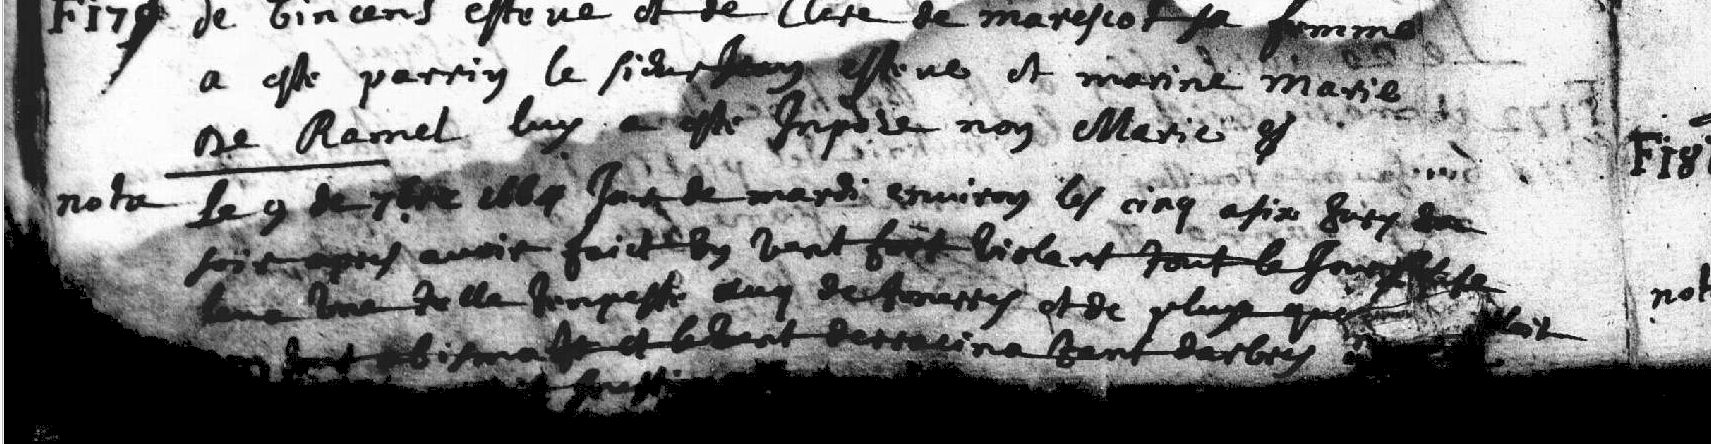 F179 de Vincens esteve et de Clere de marescot sa femme
a este parrin le sieur Jean esteve et marine Marie
De Ramel luy a este Inpôze non Marie
nota Le 9 de 7bre 1664 Jour de mardi environ les cinq a six hures du
soir apres avoir faict un vent fort violant tout le Jour
leva une telle tempeste avec de tonerres et de pluye que
abisma et le vent derracina tant darbres
F18
not